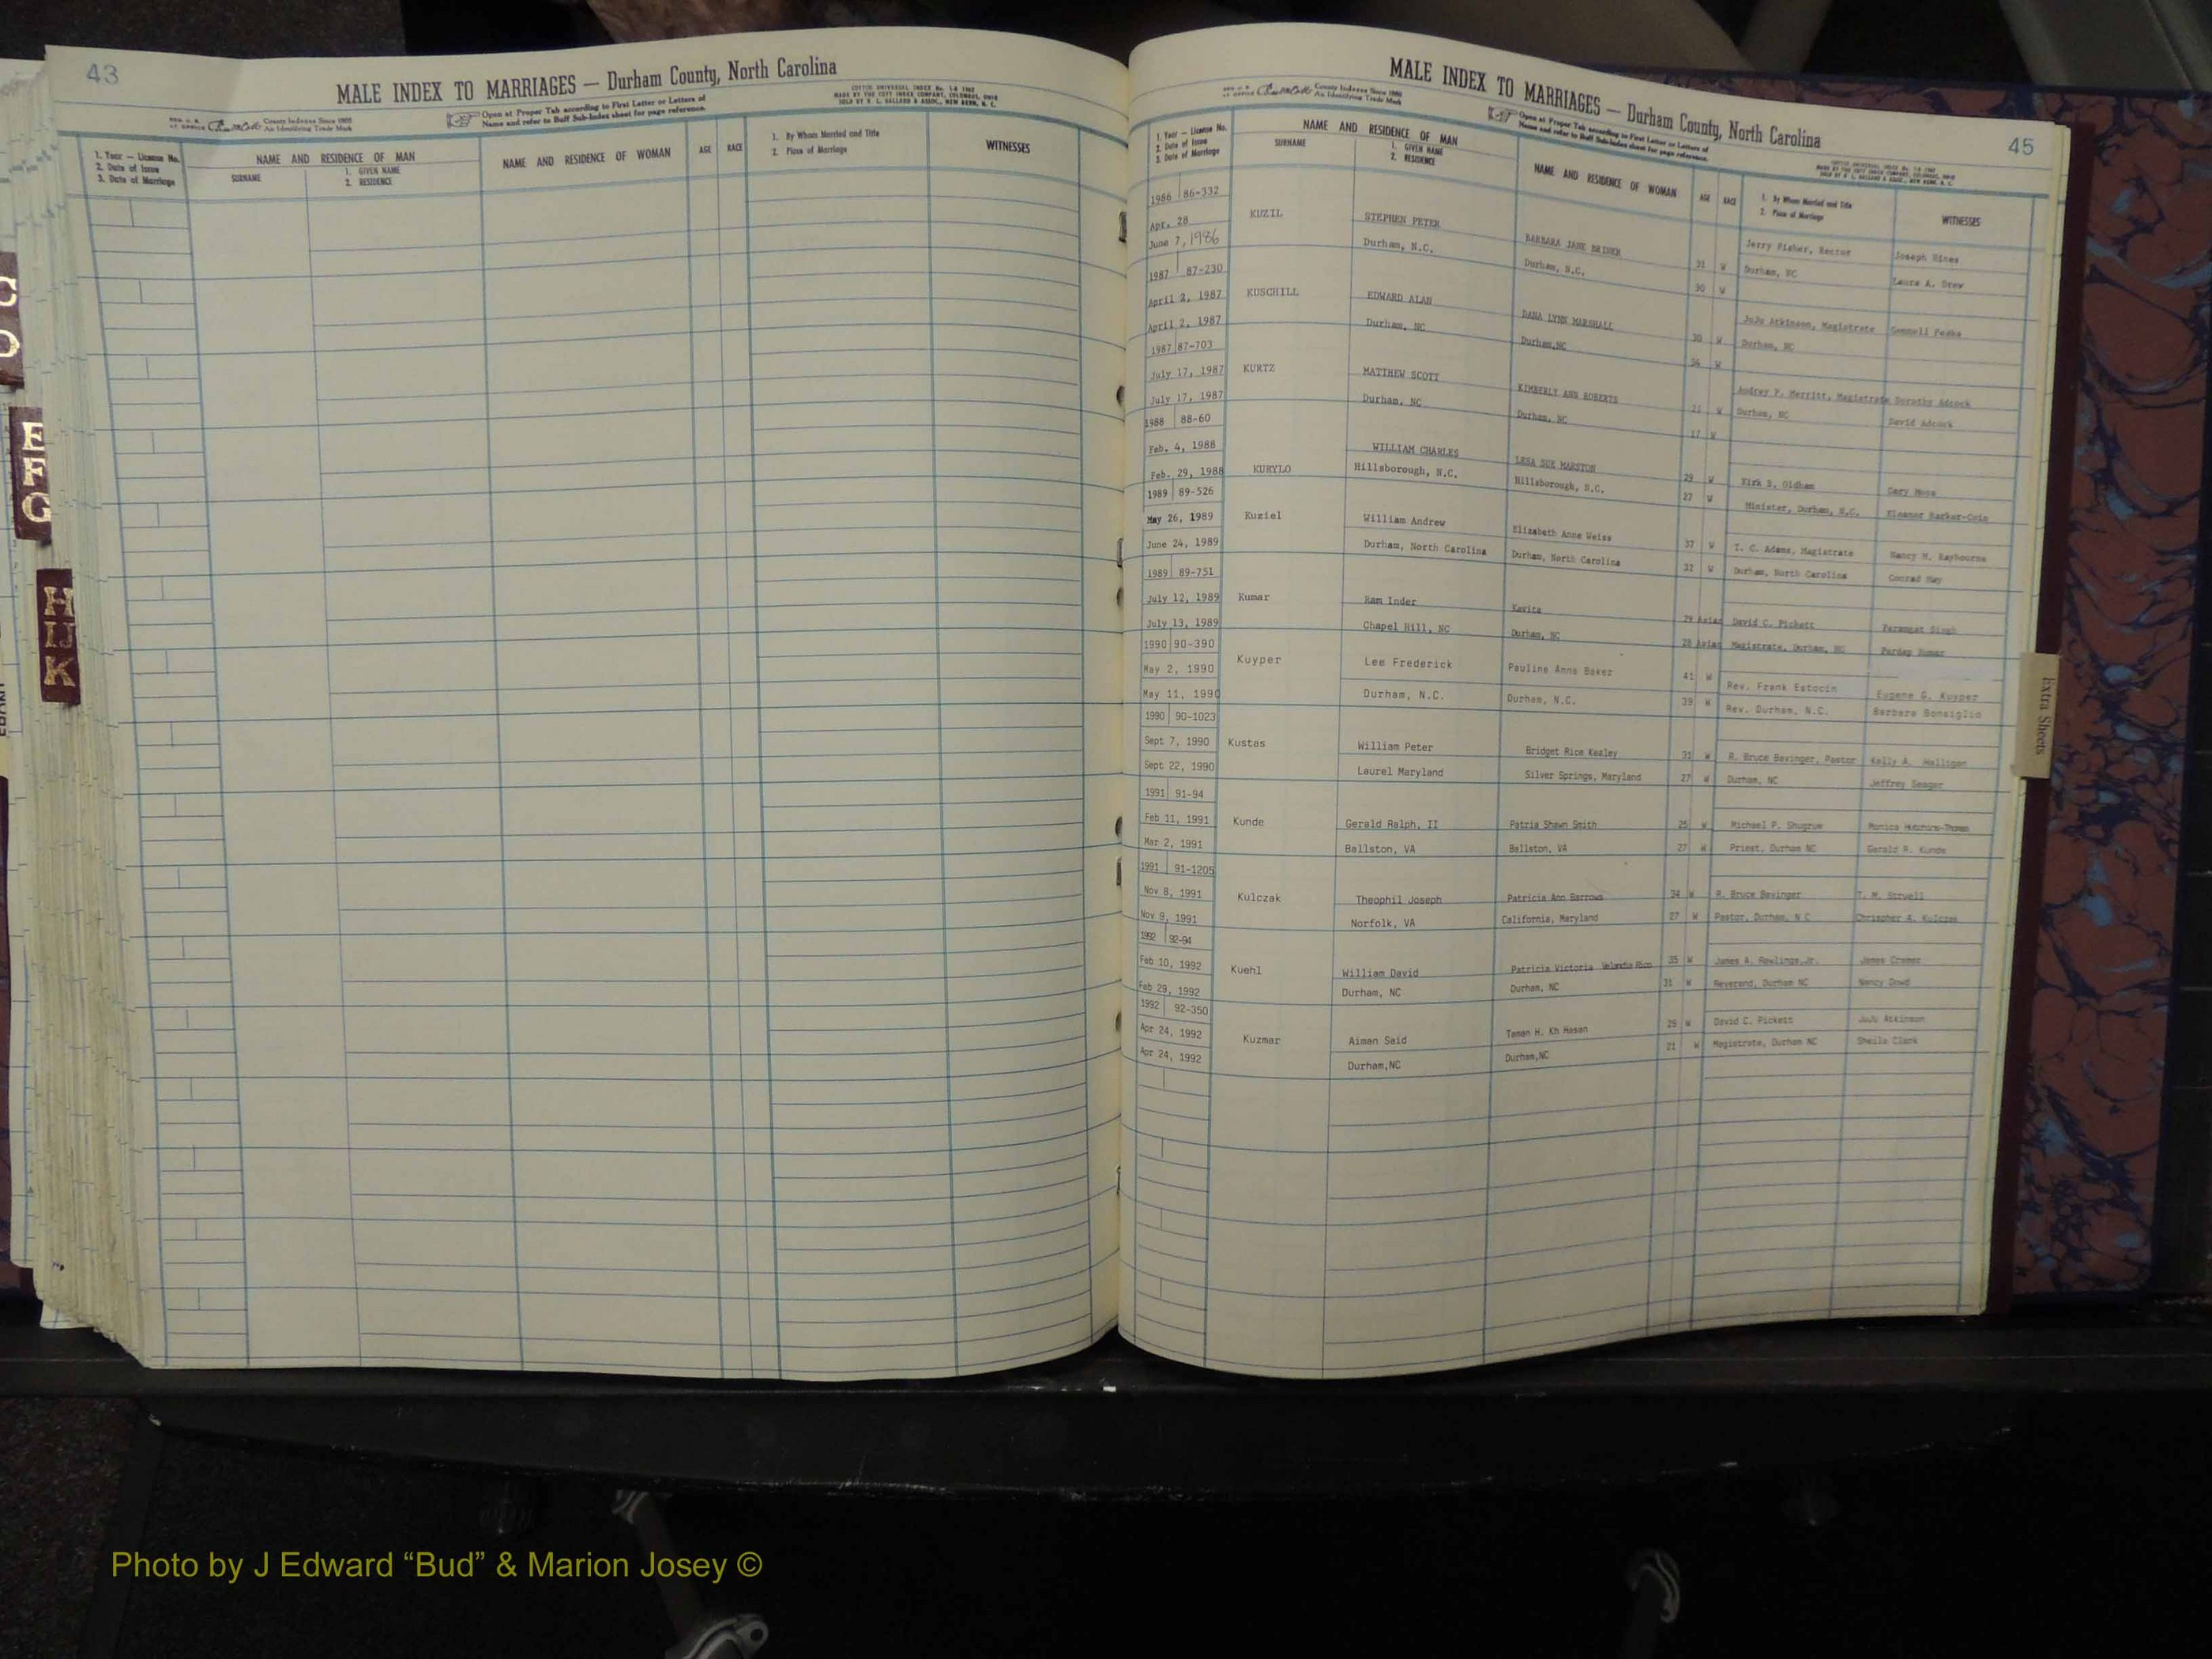 43
MALE INDEX TO MARRIAGES — Durham County, North Carolina
County Indexes Since 1888
An Identifying Trade Mark
Open at Proper Tab according to First Letter or Letters of
Name and refer to Buff Sub-Index sheet for page reference.
1. Year — License No.
2. Date of Issue
3. Date of Marriage
NAME AND RESIDENCE OF MAN
SURNAME
1. GIVEN NAME
2. RESIDENCE
NAME AND RESIDENCE OF WOMAN
AGE
RACE
1. By Whom Married and Title
2. Place of Marriage
WITNESSES
C
D
E
F
G
H
IJ
K
MALE INDEX TO MARRIAGES — Durham County, North Carolina
45
County Indexes Since 1888
An Identifying Trade Mark
Open at Proper Tab according to First Letter or Letters of
Name and refer to Buff Sub-Index sheet for page reference.
1. Year — License No.
2. Date of Issue
3. Date of Marriage
NAME AND RESIDENCE OF MAN
SURNAME
1. GIVEN NAME
2. RESIDENCE
NAME AND RESIDENCE OF WOMAN
AGE
RACE
1. By Whom Married and Title
2. Place of Marriage
WITNESSES
1986 86-332
Apr. 28 KUZIL STEPHEN PETER BARBARA JANE BRINER 31 W Jerry Fisher, Rector Joseph Hines
June 7, 1986 Durham, N.C. Durham, N.C. 30 W Durham, NC Laura A. Drew
1987 87-230
April 2, 1987 KUSCHILL EDWARD ALAN DANA LYNN MARSHALL 30 W JuJu Atkinson, Magistrate
April 2, 1987 Durham, NC Durham,NC 34 W Durham, NC
1987 87-703
July 17, 1987 KURTZ MATTHEW SCOTT KIMBERLY ANN ROBERTS 21 W Audrey P. Merritt, Magistrate Dorothy Adcock
July 17, 1987 Durham, NC Durham, NC 17 W Durham, NC David Adcock
1988 88-60
Feb. 4, 1988 WILLIAM CHARLES LESA SUE MARSTON 29 W Kirk B. Oldham Gary Hose
Feb. 29, 1988 KURYLO Hillsborough, N.C. Hillsborough, N.C. 27 W Minister, Durham, N.C. Eleanor Barker-Coin
1989 89-526
May 26, 1989 Kuziel William Andrew Elizabeth Anne Weiss 37 W T. C. Adams, Magistrate Nancy M. Raybourne
June 24, 1989 Durham, North Carolina Durham, North Carolina 32 W Durham, North Carolina Conrad May
1989 89-751
July 12, 1989 Kumar Ram Inder Kavita 29 Asian David C. Pickett Singh
July 13, 1989 Chapel Hill, NC Durham, NC 28 Asian Magistrate, Durham, NC Pardap Kumar
1990 90-390
May 2, 1990 Kuyper Lee Frederick Pauline Anna Baker 41 W Rev. Frank Estocin Eugene G. Kuyper
May 11, 1990 Durham, N.C. Durham, N.C. 39 W Rev. Durham, N.C. Barbara Bonsiglio
1990 90-1023
Sept 7, 1990 Kustas William Peter Bridget Rice Kealey 31 W R. Bruce Bavinger, Pastor Kelly A. Halligan
Sept 22, 1990 Laurel Maryland Silver Springs, Maryland 27 W Durham, NC Jeffrey Seager
1991 91-94
Feb 11, 1991 Kunde Gerald Ralph, II Patria Shawn Smith 25 W Michael P. Shugrue Monica Hutchins-Thomas
Mar 2, 1991 Ballston, VA Ballston, VA 27 W Priest, Durham NC Gerald R. Kunde
1991 91-1205
Nov 8, 1991 Kulczak Theophil Joseph Patricia Ann Barrows 34 W R. Bruce Bavinger T. M. Struell
Nov 9, 1991 Norfolk, VA California, Maryland 27 W Pastor, Durham, N C Chrispher A. Kulczak
1992 92-94
Feb 10, 1992 Kuehl William David Patricia Victoria Velandia Rico 35 W James A. Rawlings,Jr. James Cramer
Feb 29, 1992 Durham, NC Durham, NC 31 W Reverend, Durham NC Nancy Dowd
1992 92-350
Apr 24, 1992 Kuzmar Aiman Said Taman H. Kh Hasan 29 W David C. Pickett JuJu Atkinson
Apr 24, 1992 Durham,NC Durham,NC 21 W Magistrate, Durham NC Sheila Clark
Extra Sheets
Photo by J Edward “Bud” & Marion Josey ©